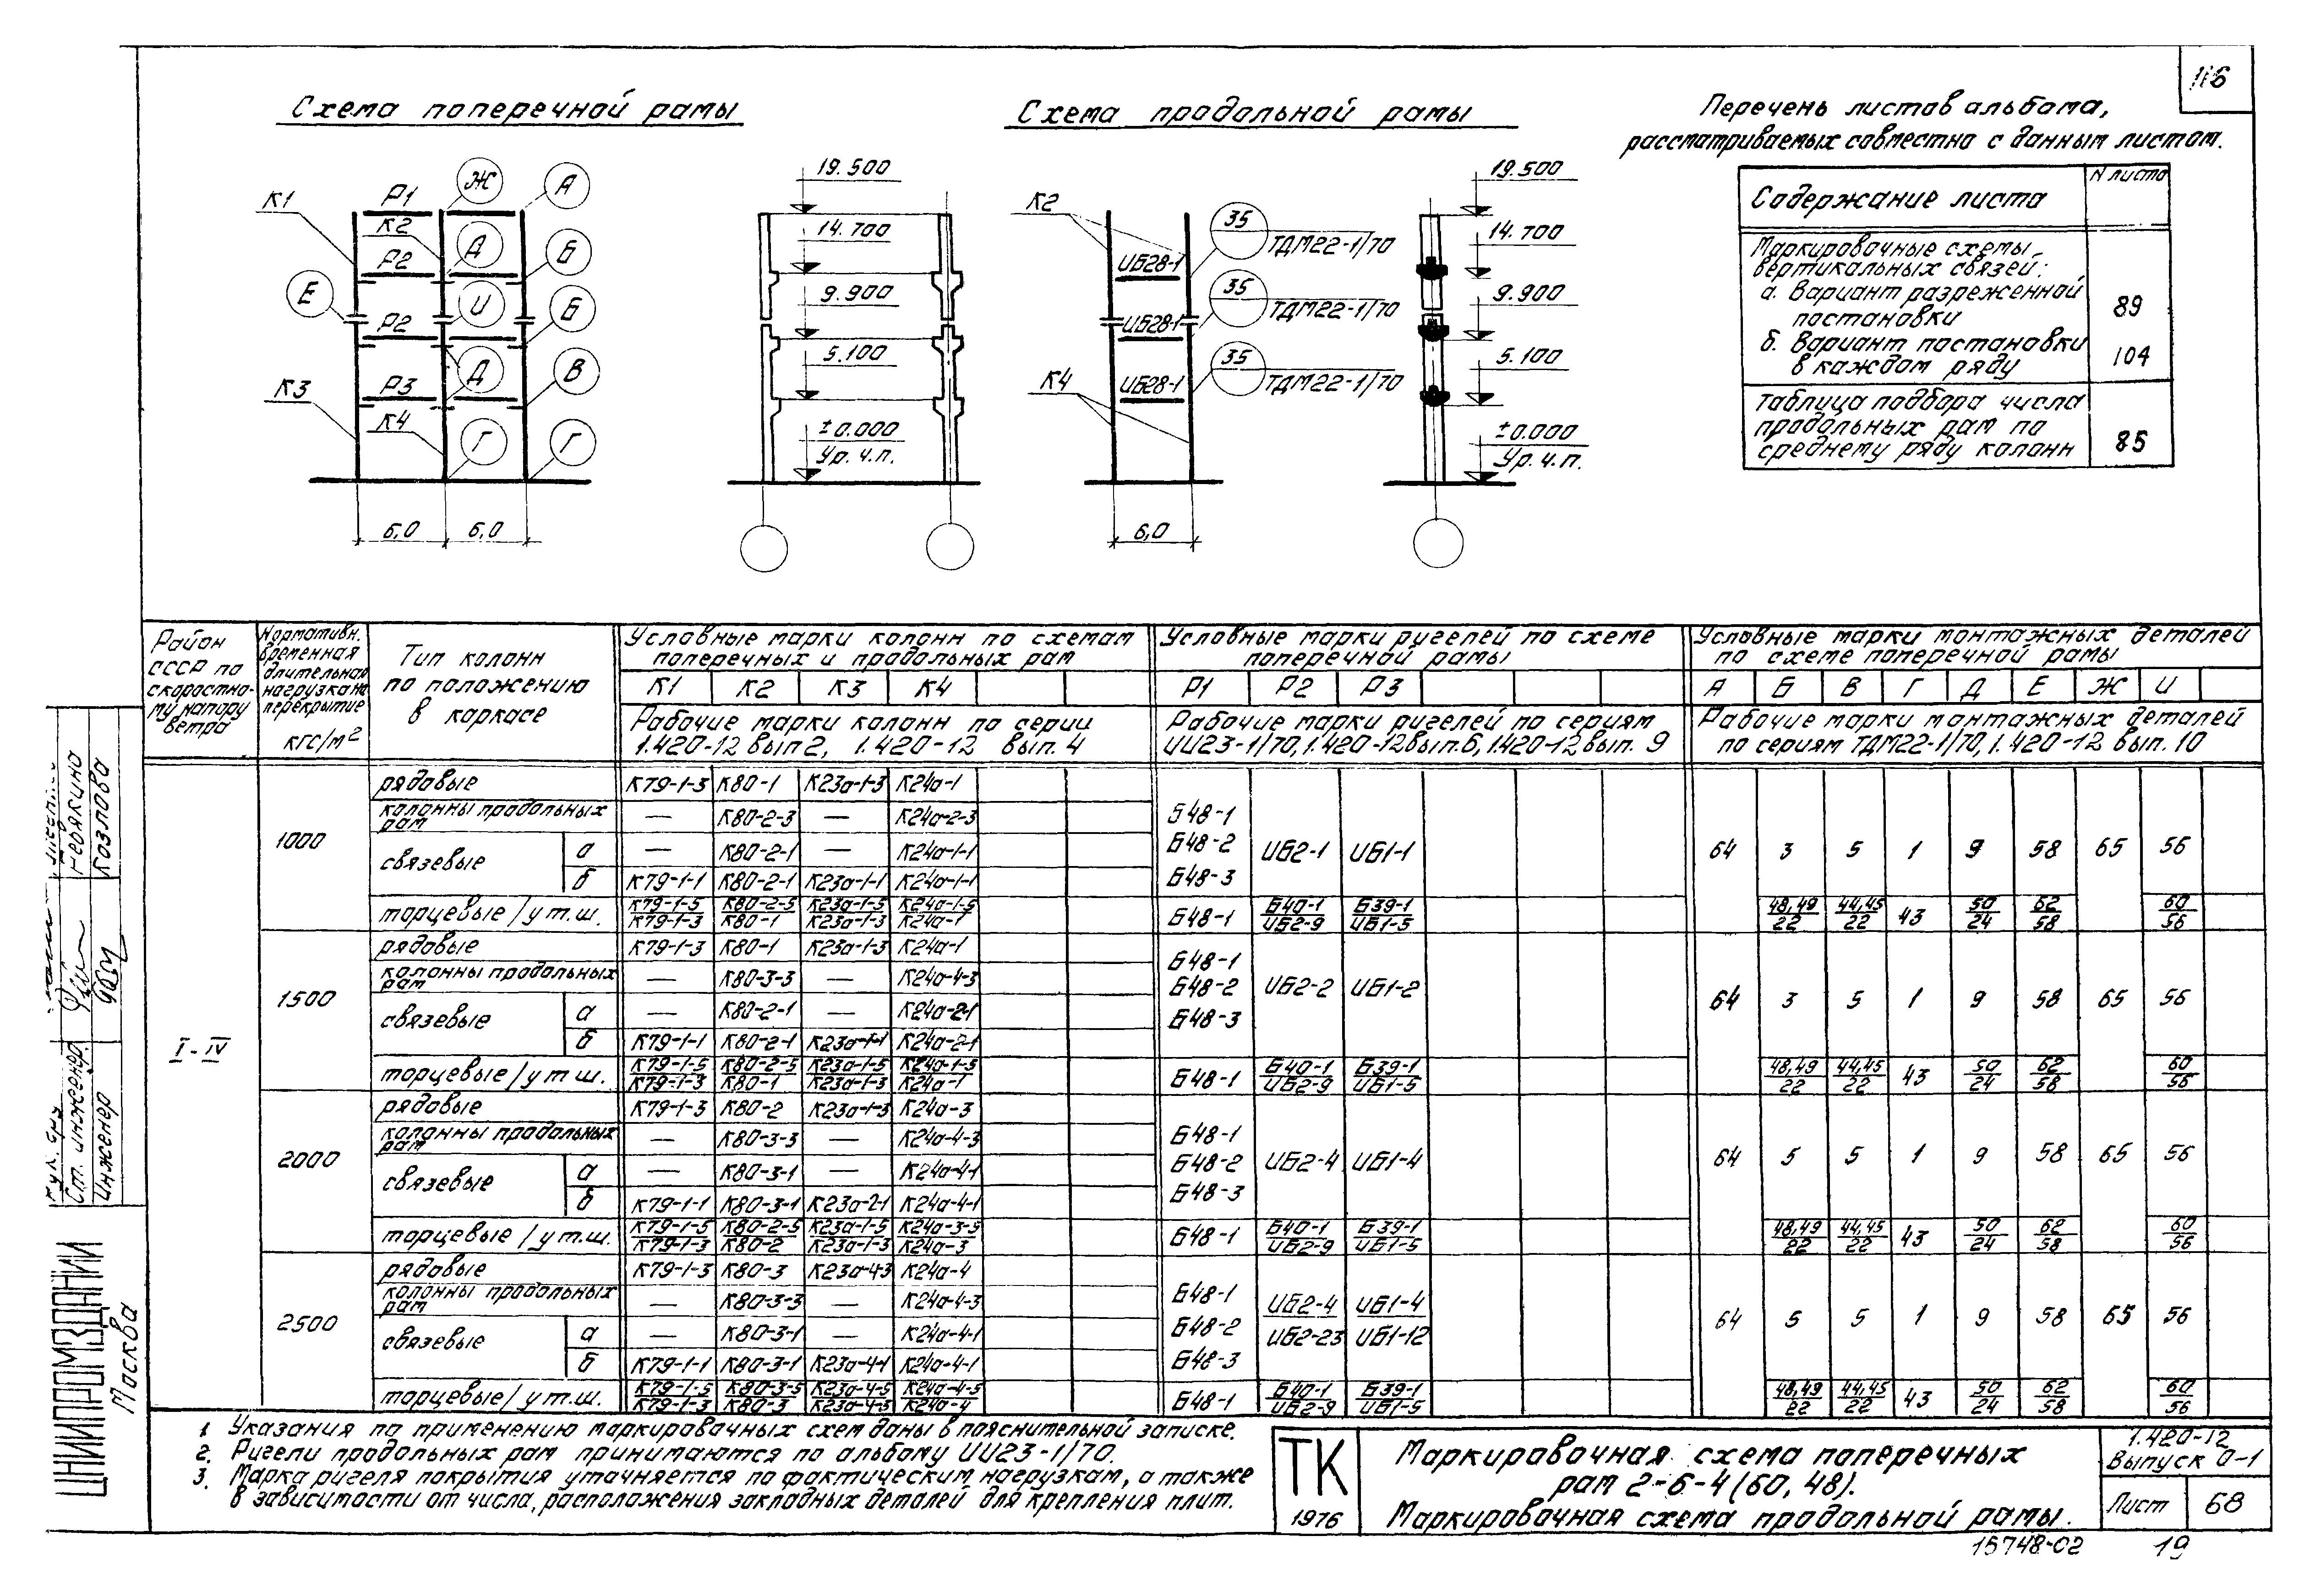 116
Схема поперечной рамы
Схема продольной рамы
Перечень листов альбома,
рассматриваемых совместно с данным листом.
Содержание листа
N листа
Маркировочные схемы
вертикальных связей:
а. Вариант разреженной
постановки
89
б. Вариант постановки
в каждом ряду
104
Таблица подбора числа
продольных рам по
среднему ряду колонн
85
К1
Р1
К2
Р2
Р2
К3
Р3
К4
Ж
А
Д
Б
Е
И
Б
Д
В
Г
Г
6,0
6,0
19.500
14.700
9.900
5.100
±0.000
Ур. ч.п.
К2
ИБ28-1
ИБ28-1
К4
ИБ28-1
35
ТДМ22-1/70
35
ТДМ22-1/70
35
ТДМ22-1/70
6,0
19.500
14.700
9.900
5.100
±0.000
Ур. ч.п.
Район
СССР по
скоростно-
му напору
ветра
Нормативн.
временная
длительная
нагрузка на
перекрытие
кгс/м²
Тип колонн
по положению
в каркасе
Условные марки колонн по схемам
поперечных и продольных рам
К1 К2 К3 К4
Рабочие марки колонн по серии
1.420-12 вып 2, 1.420-12 вып. 4
Условные марки ригелей по схеме
поперечной рамы
Р1 Р2 Р3
Рабочие марки ригелей по сериям
ИИ23-1/70, 1.420-12 вып. 6, 1.420-12 вып. 9
Условные марки монтажных деталей
по схеме поперечной рамы
А Б В Г Д Е Ж И
Рабочие марки монтажных деталей
по сериям ТДМ22-1/70, 1.420-12 вып. 10
I-IV
1000
рядовые К79-1-3 К80-1 К23а-1-3 К24а-1
колонны продольных рам — К80-2-3 — К24а-2-3
связевые
а — К80-2-1 — К24а-1-1
б К79-1-1 К80-2-1 К23а-1-1 К24а-1-1
Б48-1
Б48-2 ИБ2-1 ИБ1-1
Б48-3
64 3 5 1 9 58 65 56
торцевые/у т.ш.
К79-1-5 К80-2-5 К23а-1-5 К24а-1-5
К79-1-3 К80-1 К23а-1-3 К24а-1
Б48-1
Б40-1 Б39-1
ИБ2-9 ИБ1-5
48,49 44,45 43 50 62 60
22 22 24 58 56
1500
рядовые К79-1-3 К80-1 К23а-1-3 К24а-1
колонны продольных рам — К80-3-3 — К24а-4-3
связевые
а — К80-2-1 — К24а-2-1
б К79-1-1 К80-2-1 К23а-1-1 К24а-2-1
Б48-1
Б48-2 ИБ2-2 ИБ1-2
Б48-3
64 3 5 1 9 58 65 56
торцевые/у т.ш.
К79-1-5 К80-2-5 К23а-1-5 К24а-1-5
К79-1-3 К80-1 К23а-1-3 К24а-1
Б48-1
Б40-1 Б39-1
ИБ2-9 ИБ1-5
48,49 44,45 43 50 62 60
22 22 24 58 56
2000
рядовые К79-1-3 К80-2 К23а-1-3 К24а-3
колонны продольных рам — К80-3-3 — К24а-4-3
связевые
а — К80-3-1 — К24а-4-1
б К79-1-1 К80-3-1 К23а-2-1 К24а-4-1
Б48-1
Б48-2 ИБ2-4 ИБ1-4
Б48-3
64 5 5 1 9 58 65 56
торцевые/у т.ш.
К79-1-5 К80-2-5 К23а-1-5 К24а-3-5
К79-1-3 К80-2 К23а-1-3 К24а-3
Б48-1
Б40-1 Б39-1
ИБ2-9 ИБ1-5
48,49 44,45 43 50 62 60
22 22 24 58 56
2500
рядовые К79-1-3 К80-3 К23а-4-3 К24а-4
колонны продольных рам — К80-3-3 — К24а-4-3
связевые
а — К80-3-1 — К24а-4-1
б К79-1-1 К80-3-1 К23а-4-1 К24а-4-1
Б48-1 ИБ2-4 ИБ1-4
Б48-2 ИБ2-23 ИБ1-12
Б48-3
64 5 5 1 9 58 65 56
торцевые/у т.ш.
К79-1-5 К80-3-5 К23а-4-5 К24а-4-5
К79-1-3 К80-3 К23а-4-3 К24а-4
Б48-1
Б40-1 Б39-1
ИБ2-9 ИБ1-5
48,49 44,45 43 50 62 60
22 22 24 58 56
1 Указания по применению маркировочных схем даны в пояснительной записке.
2. Ригели продольных рам принимаются по альбому ИИ23-1/70.
3. Марка ригеля покрытия уточняется по фактическим нагрузкам, а также
в зависимости от числа, расположения закладных деталей для крепления плит.
ТК
1976
Маркировочная схема поперечных
рам 2-6-4 (60, 48).
Маркировочная схема продольной рамы.
1.420-12
Выпуск 0-1
Лист 68
15748-02 19
ЦНИИПРОМЗДАНИЙ
Москва
Рук. гр.
Ст. инженер
Инженер
Козлова